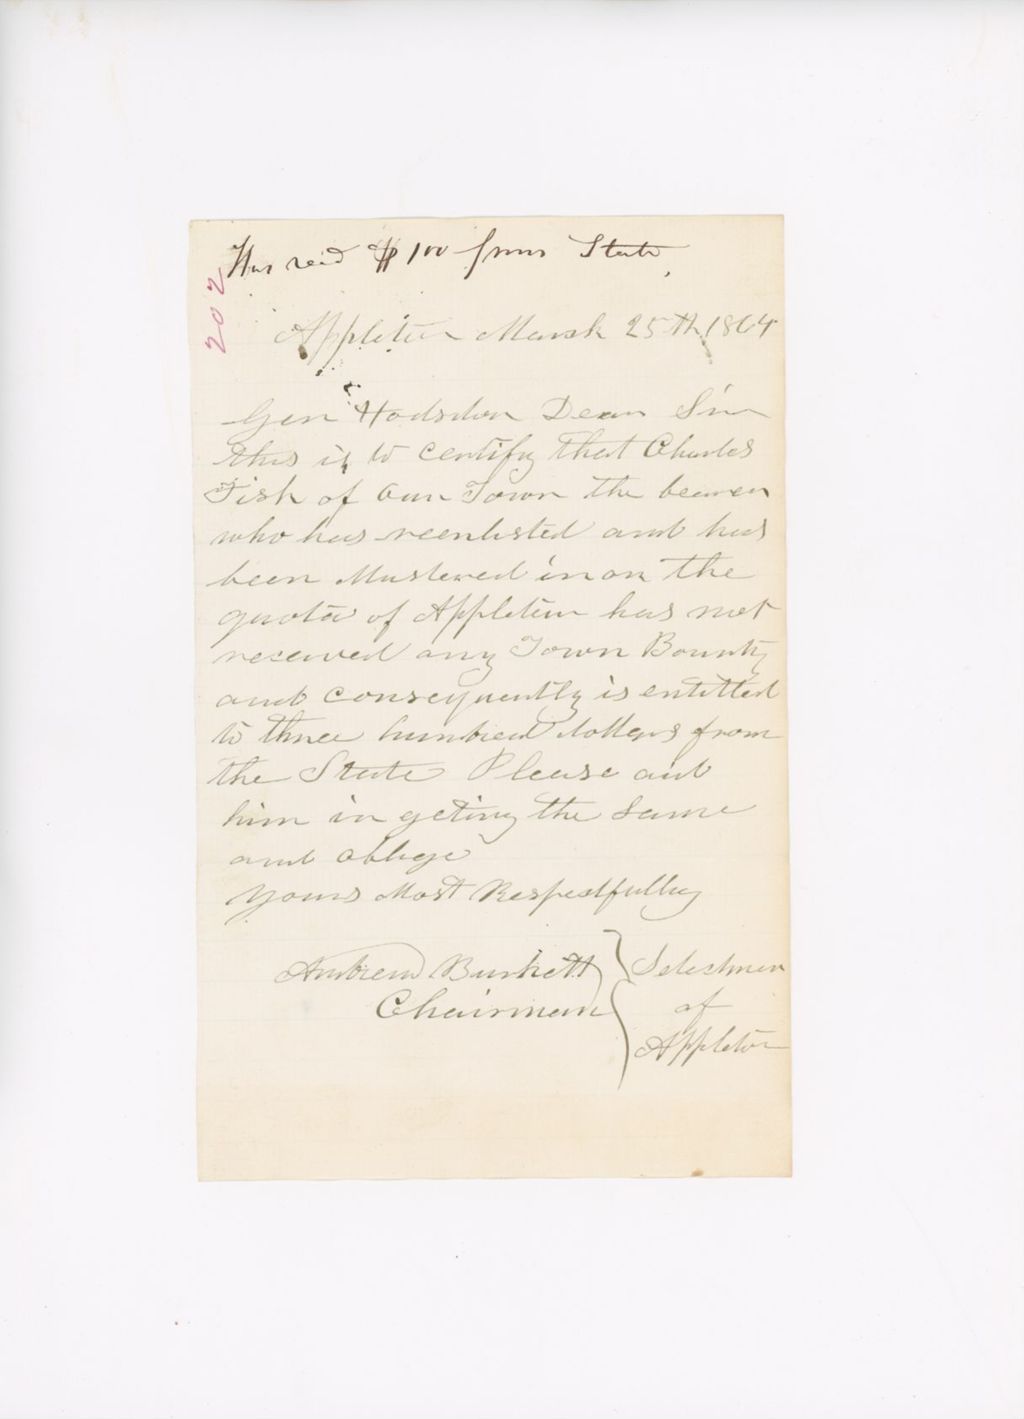 Has recd $100 from State
202
Appleton March 25th, 1864
Gen Hodsdon Dear Sir
this is to certify that Charles
Fish of Our Town the bearer
who has reenlisted and has
been Mustered in on the
quota of Appleton has not
received any Town Bounty
and consequently is entitled
to three hundred dollars from
the State Please aid
him in geting the same
and oblige
yours Most Respectfully
Andrew Burkett } Selectmen
Chairman } of
Appleton